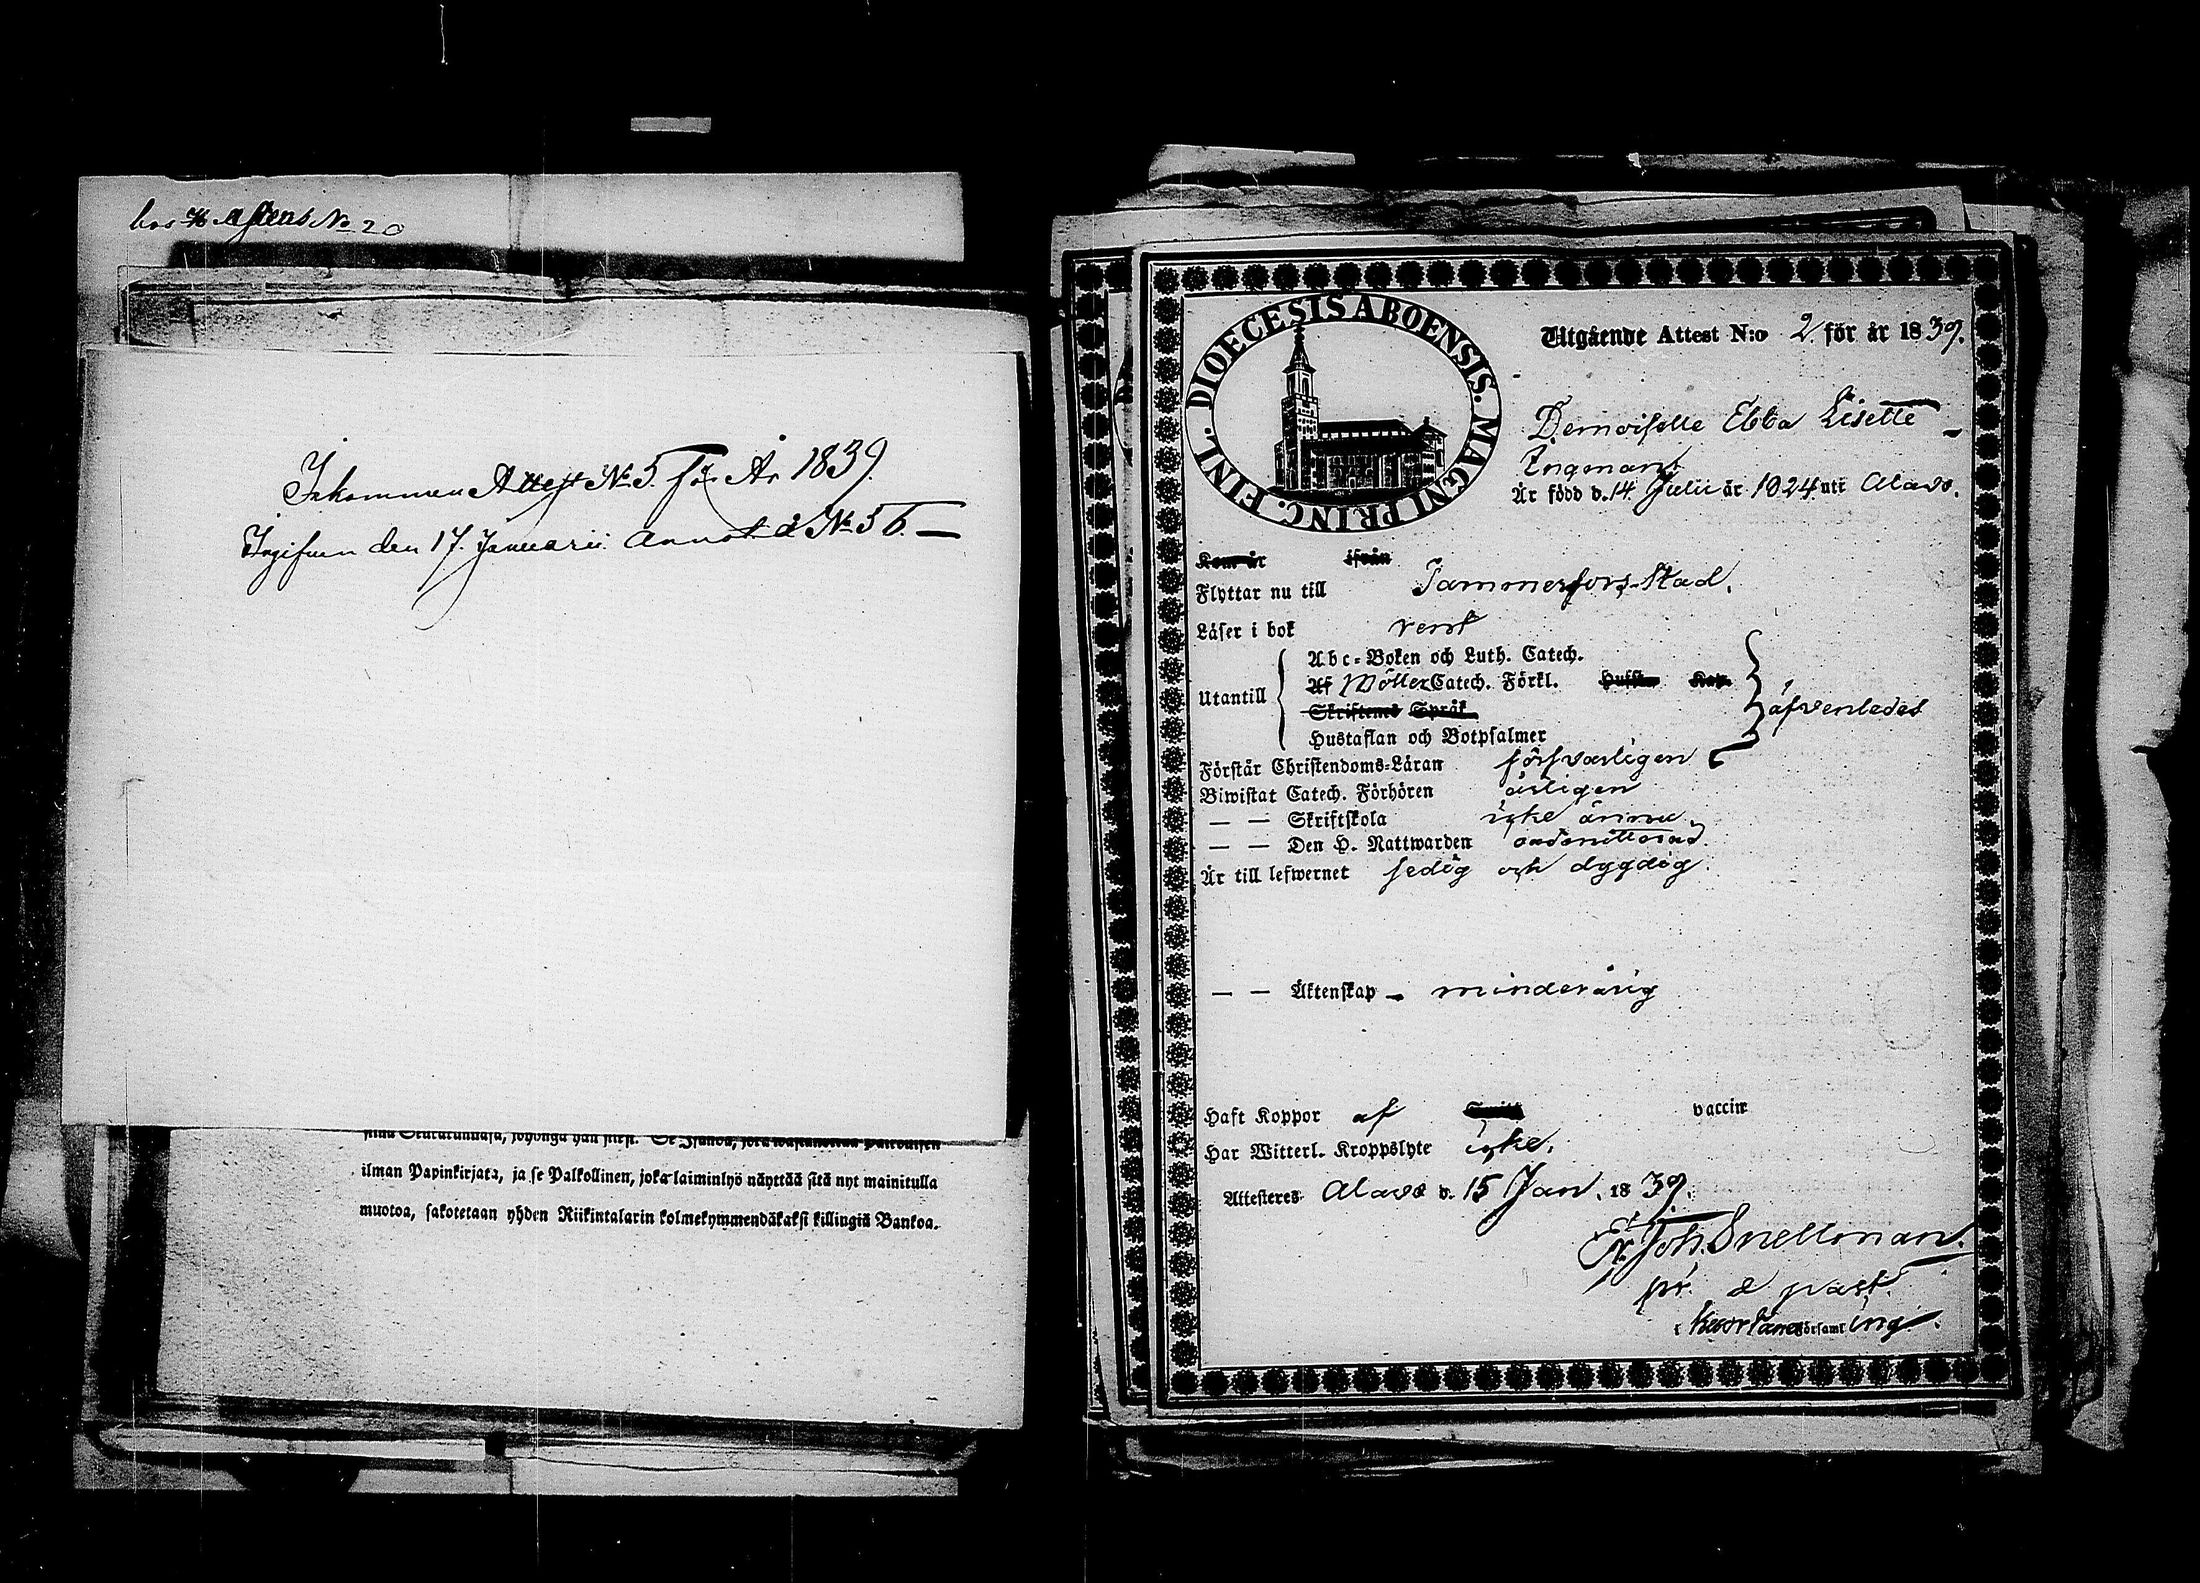 hos H Astens No 20
Inkommen Attest No 5. för År 1839.
Ingifven den 17. Januarii. Annot. å No 56. —
ilman Papinkirjata, ja se Palkollinen, joka laiminlyö näyttää sitä nyt mainitulla
muotoa, sakotetaan yhden Riikintalarin kolmekymmendäkaksi killingiä Bankoa.
DIOECESIS ABOENSIS. MAGNI PRINC. FINL.
Utgående Attest N:o 2. för år 1839.
Demoiselle Ebba Lisette
Engmans
Är född d. 14 Julii år 1824 uti Alavo.
Kom år ifrån
Flyttar nu till Tammerfors Stad.
Läser i bok rent
Abc-Boken och Luth. Catech.
Utantill Af Möller Catech. Förkl. Hussm. Kap. äfvenledes
Skriftenes Språk
Hustaflan och Botpsalmer
Förstår Christendoms-Läran försvarligen
Biwistat Catech. Förhören årligen
— — Skriftskola icke ännu
— — Den H. Nattwarden oadmitterad.
Är till lefwernet sedig och dygdig.
— — Äktenskap — minderårig
Haft Koppor af vaccin
Har Witterl. Kroppslyte icke.
Attesteres Alavo d. 15 Jan. 1839.
Joh. Snellman.
pr. & past.
i Kuortane Församling.